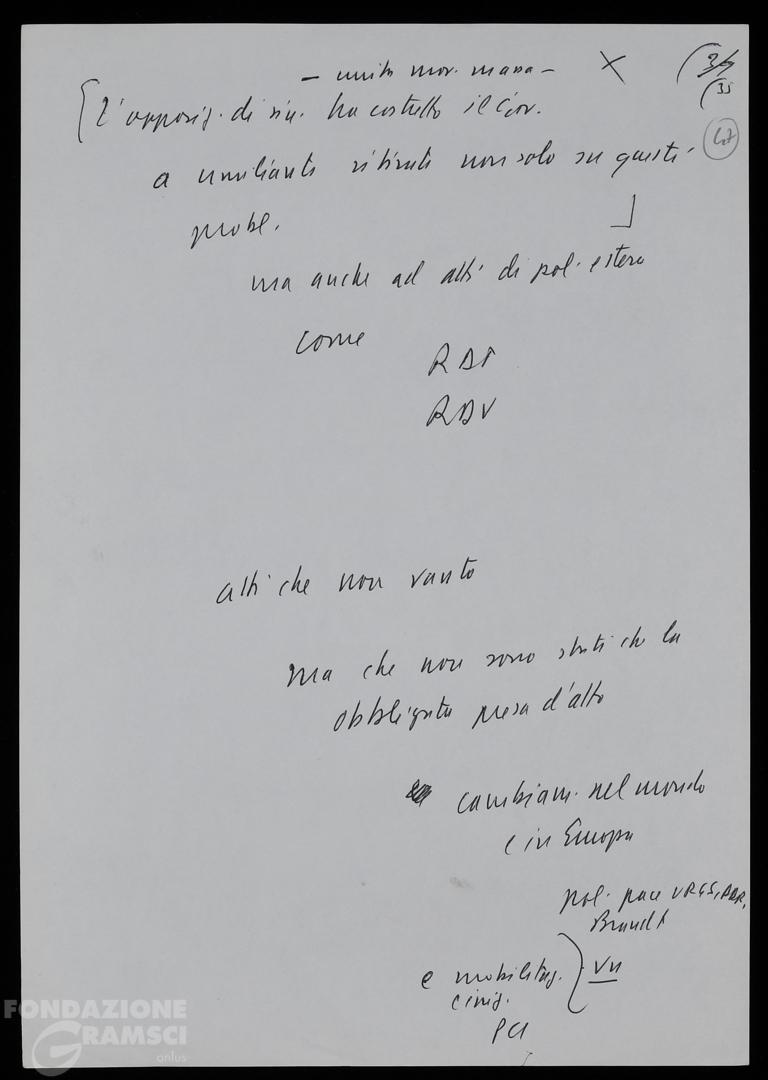 – unità mov. massa –
X
(35
47
L'opposiz. di sin. ha costretto il Gov.
a umilianti ritirate non solo su questi
probl.
ma anche ad atti di pol. estera
come
RDT
RDV
atti che non vanto
ma che non sono stati che la
obbligata presa d'atto
cambiam. nel mondo
e in Europa
pol. pace URSS,
Brandt
e mobilitaz. Vn
civig.
PCI
FONDAZIONE
GRAMSCI
onlus